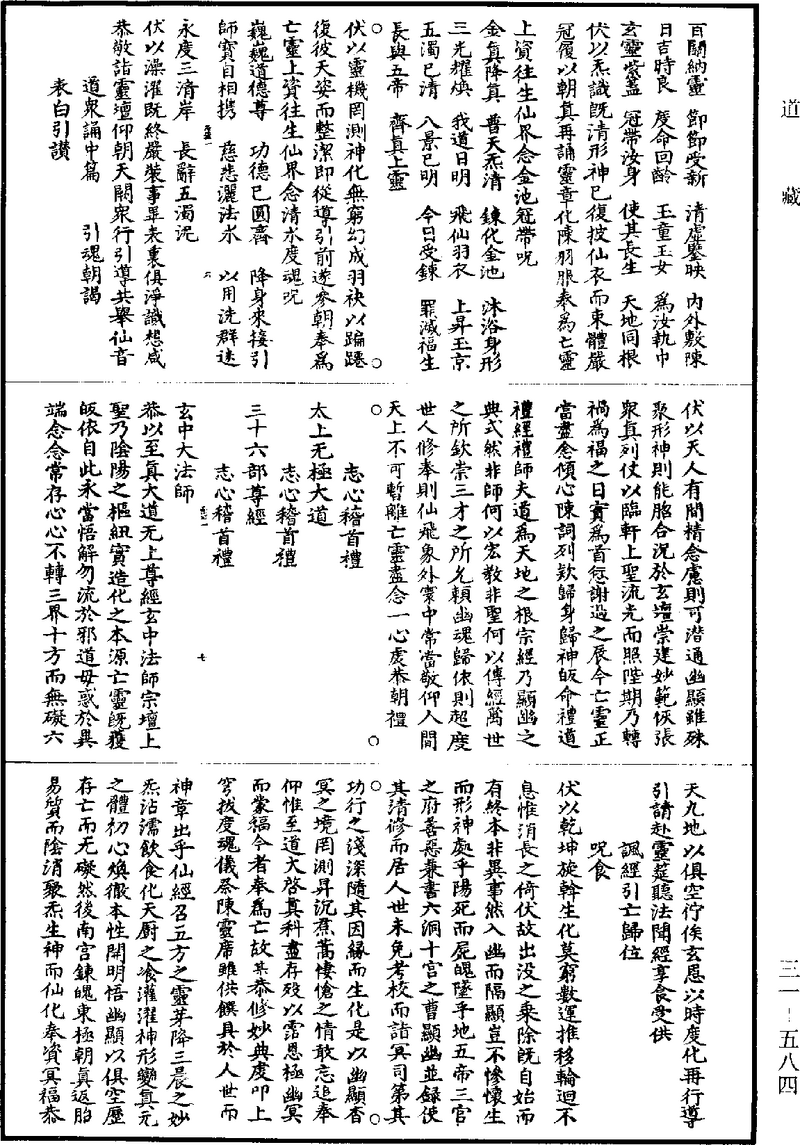 道藏
三一－五八四
百關納靈　節節受新　清虛鑒映　內外敷陳
日吉時良　度命回齡　玉童玉女　為汝執巾
玄靈紫蓋　冠帶汝身　使其長生　天地同根
伏以炁識既清形神已復披仙衣而東體嚴
冠履以朝真再誦靈章化陳羽服奉為亡靈
上資往生仙界念金池冠帶呪
金真降真　普天炁清　鍊化金池　沐浴身形
三光耀煥　我道日明　飛仙羽衣　上昇玉京
五濁已清　八景已明　今日受鍊　罪滅福生
長與五帝　齊真上靈
伏以靈機罔測神化無窮幻成羽袂以蹁躚
復彼天姿而整潔即從導引前遂參朝奉為
亡靈上資往生仙界念清水度魂呪
巍巍道德尊　功德已圓齊　降身來接引
師寶自相携　慈悲灑法水　以用洗群迷
永度三清岸　長辭五濁泥
伏以澡濯既終嚴裝事畢表裏俱淨識想咸
恭敬詣靈壇仰朝天闕眾行引導共舉仙音
道眾誦中篇　引魂朝謁
表白引讚
伏以天人有間情念慮則可潛通幽顯雖殊
聚形神則能脗合況於玄壇崇建妙範恢張
眾真列仗以臨軒上聖流光而照陛期乃轉
禍為福之日實為首愆謝過之辰今亡靈正
當盡念傾心陳詞列欵歸身歸神皈命禮道
禮經禮師夫道為天地之根宗經乃顯幽之
典式然非師何以宏教非聖何以傳經萬世
之所欽崇三才之所允賴幽魂歸依則超度
世人修奉則仙飛象外寰中常當敬仰人間
天上不可暫離亡靈盡念一心虔恭朝禮
志心稽首禮
太上无極大道
志心稽首禮
三十六部尊經
志心稽首禮
玄中大法師
恭以至真大道无上尊經玄中法師宗壇上
聖乃陰陽之樞紐實造化之本源亡靈既獲
皈依自此永當悟解勿流於邪道毋惑於異
端念念常存心心不轉三界十方而無礙六
天九地以俱空佇俟玄恩以時度化再行導
引請赴靈筵聽法聞經享食受供
諷經引亡歸位
呪食
伏以乾坤旋斡生化莫窮數運推移輪迴不
息惟消長之倚伏故出没之乘除既自始而
有終本非異事然入幽而隔顯豈不慘懷生
而形神處乎陽死而屍魄墜乎地五帝三官
之府善惡兼書六洞十宮之曹顯幽並録使
其清修而居人世未免考校而詣冥司第其
功行之淺深隨其因緣而生化是以幽顯杳
冥之境罔測昇沉焄蒿悽愴之情敢忘追奉
仰惟至道大啓真科盡存歿以霑恩極幽冥
而蒙福今者奉為亡故某恭修妙典虔叩上
穹拔度魂儀爰陳靈席雖供饌具於人世而
神章出乎仙經召五方之靈芽降三晨之妙
炁沾濡飲食化天厨之飡灌濯神形變真元
之體初心煥徹本性開明悟幽顯以俱空歷
存亡而无礙然後南宮鍊魄東極朝真返胎
易質而陰消聚炁生神而仙化奉資冥福恭